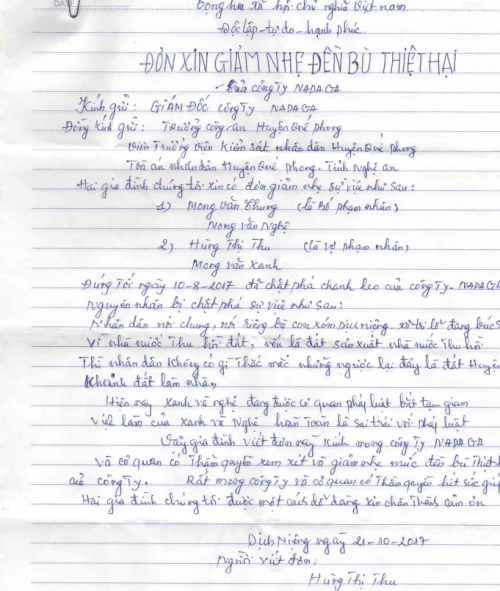 Cộng hòa xã hội chủ nghĩa Việt nam.
Độc lập - tự do - hạnh phúc.
ĐƠN XIN GIẢM NHẸ ĐỀN BÙ THIỆT HẠI
Của công Ty NADAGA
Kính gửi: GIÁM ĐỐC công Ty NADAGA
Đồng kính gửi: Trưởng công an Huyện Quế phong
Viện Trưởng viện kiểm sát nhân dân Huyện Quế phong
Toà án nhân dân Huyện Quế phong - Tỉnh Nghệ an
Hai gia đình chúng tôi xin có đơn giảm nhẹ sự việc như sau:
1) Mong văn Chung (là Bố phạm nhân)
Mong văn Nghệ
2) Hùng Thị Thu (là vợ phạm nhân)
Mong văn Xanh
Đứng tối ngày 10-8-2017 đã chặt phá chanh leo của công Ty NADAGA
Nguyên nhân bị chặt phá sự việc như sau:
Nhân dân nói chung, nói riêng bà con xóm đang bức
Vì nhà nước Thu hồi đất, nếu là đất sản xuất nhà nước Thu hồi
Thì nhân dân không có gì Thắc mắc nhưng ngược lại đây là đất Huyện
Khoảnh đất làm nhà,
Hiện nay xanh và nghệ đang được cơ quan pháp luật bắt tạm giam
việc làm của xanh và Nghệ hoàn toàn là sai trái với pháp luật
Vậy gia đình viết đơn này kính mong công Ty NADAGA
và cơ quan có Thẩm quyền xem xét và giảm nhẹ mức đền bù Thiệt
của công Ty. Rất mong công Ty và cơ quan có Thẩm quyền hết sức giúp
Hai gia đình chúng tôi được một cách dễ dàng xin chân Thành cảm ơn
Dịch Niêng ngày 21-10-2017
Người viết đơn:
Hùng Thị Thu